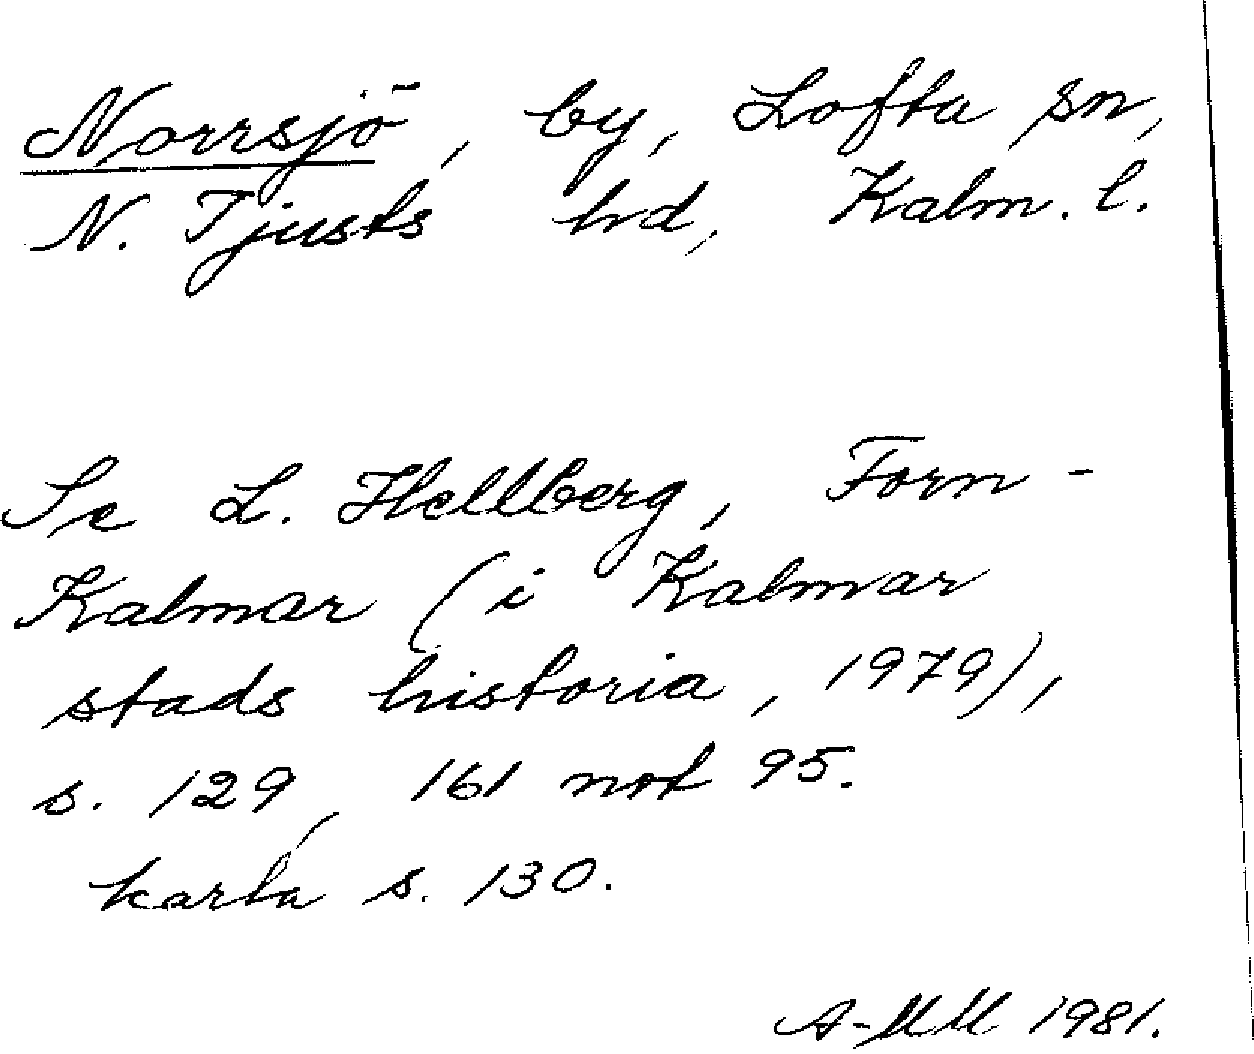 Norrsjö, by, Lofta sn,
N. Tjusts hd, Kalm. l.
Se L. Hellberg, Forn-
Kalmar (i Kalmar
stads historia, 1979),
s. 129, 161 not 95.
karta s. 130.
A-MM 1981.